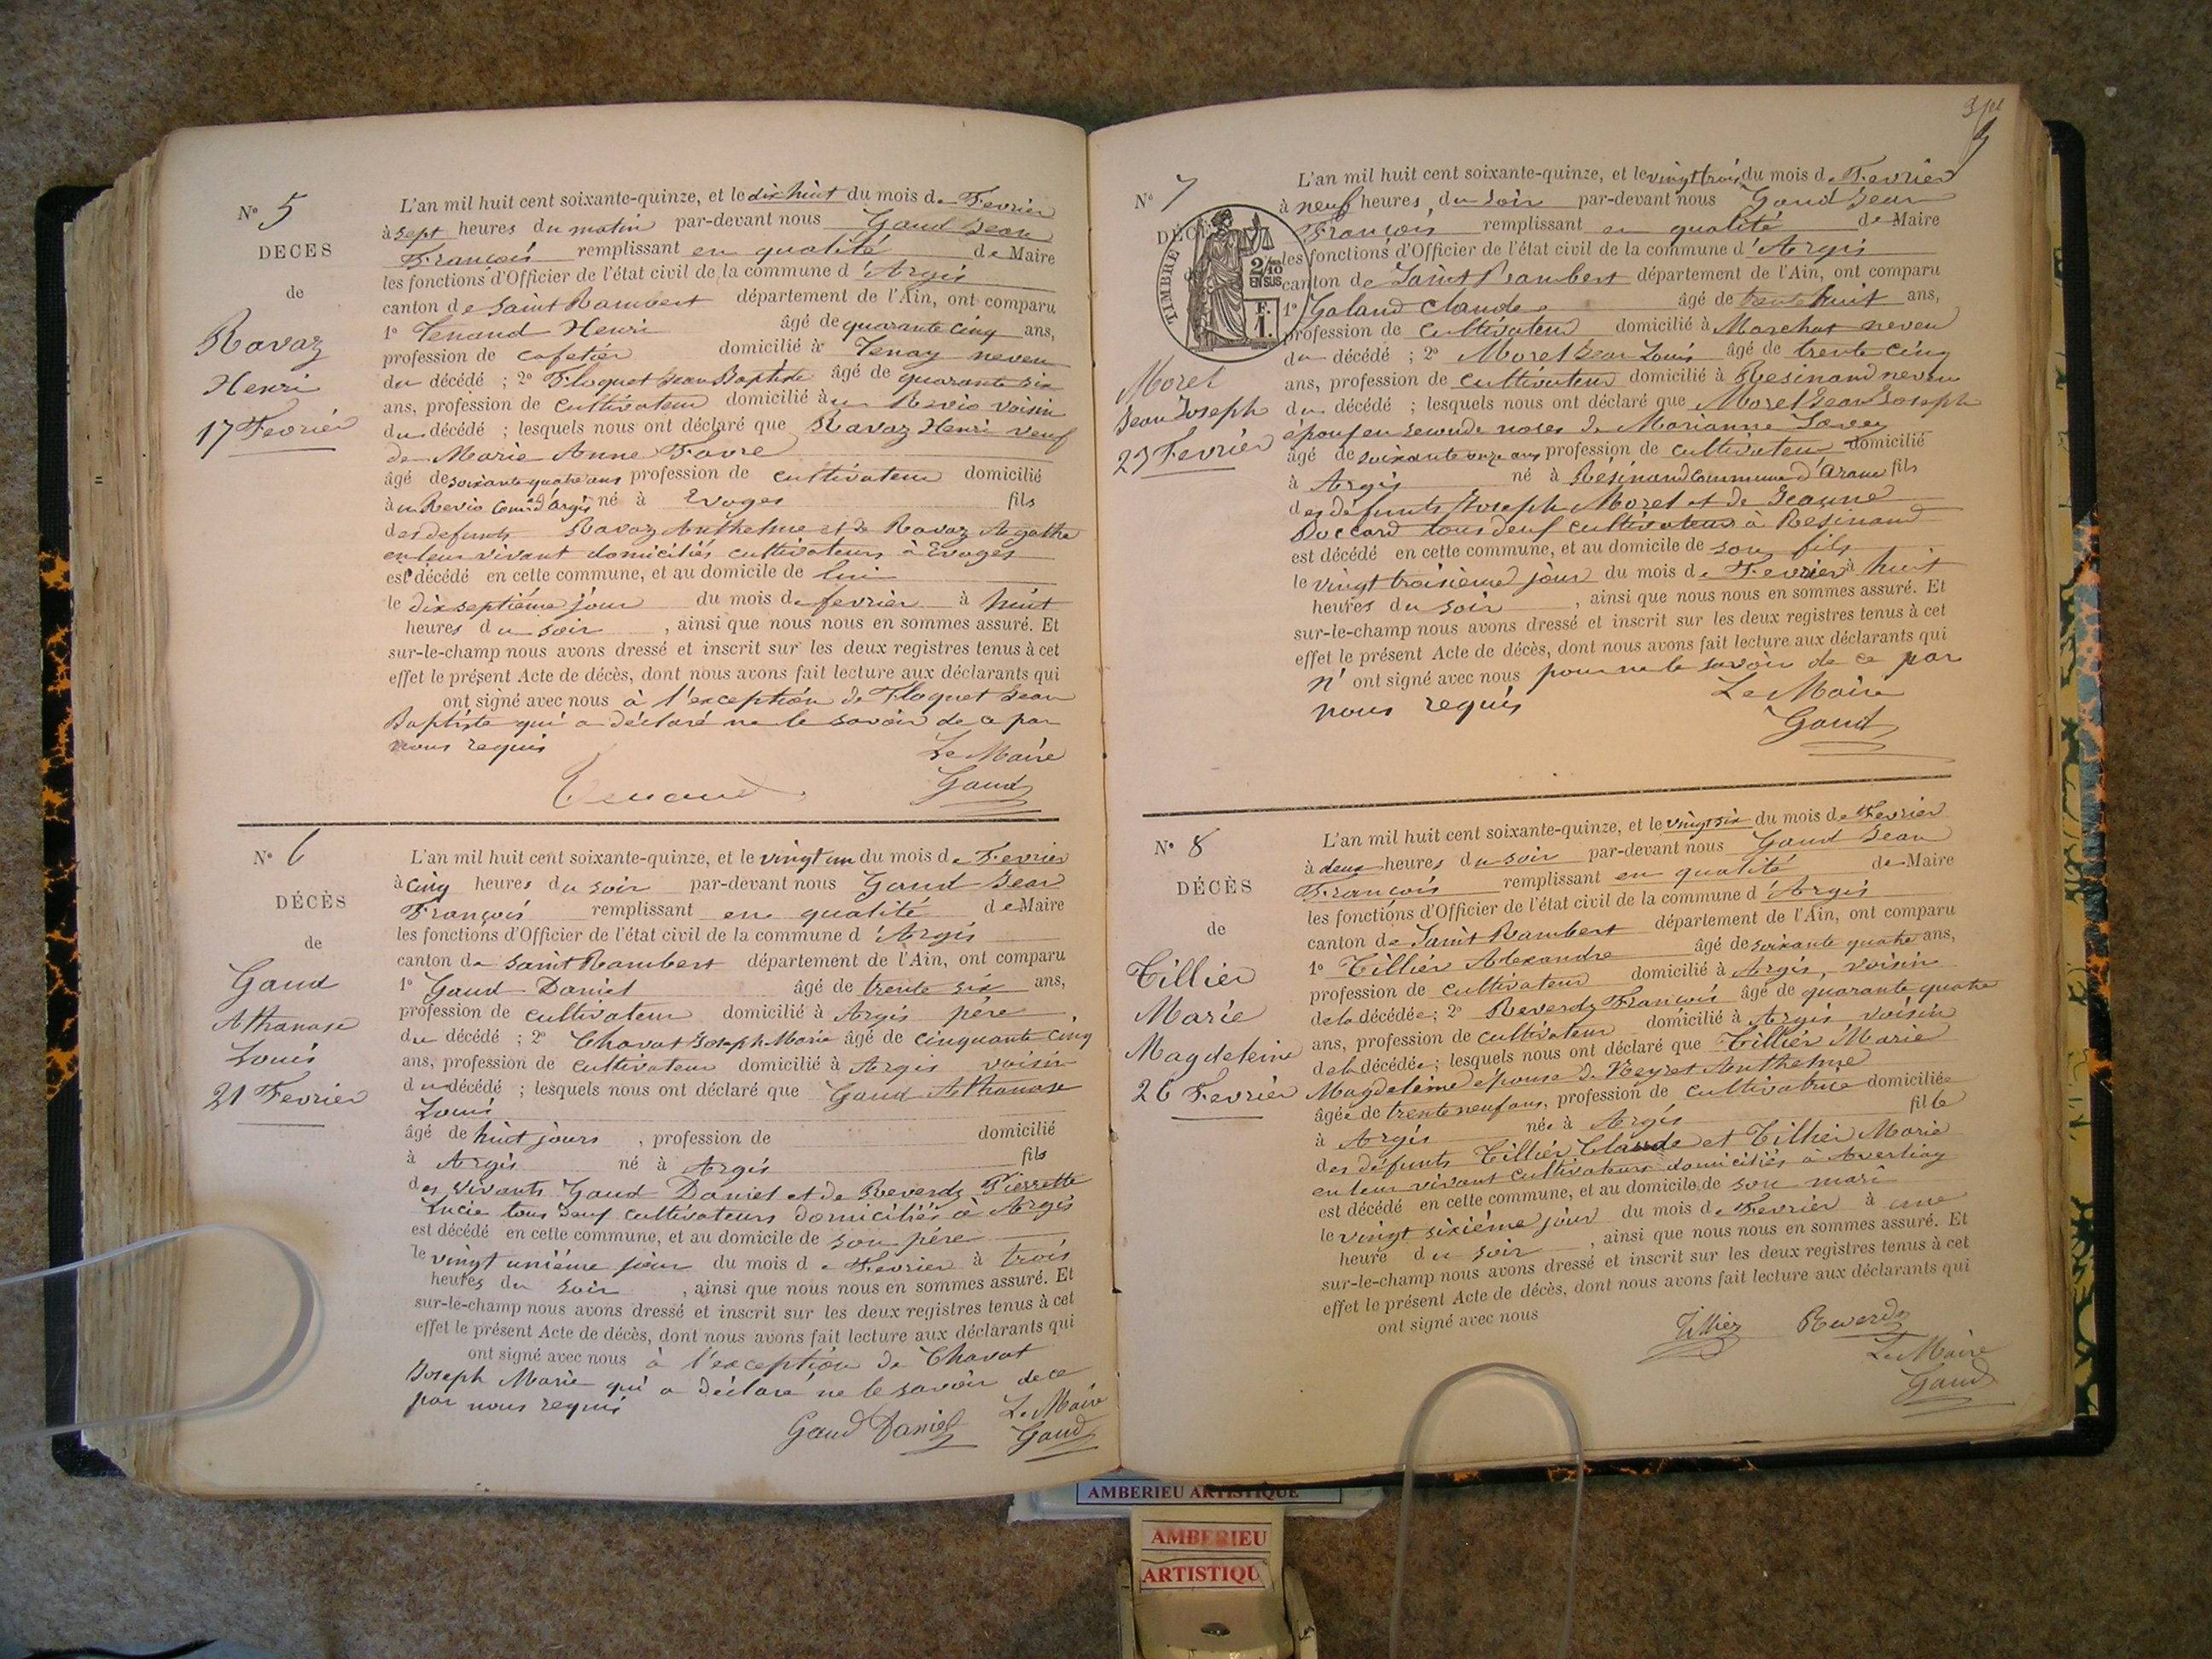 N° 5
DECES
de
Ravaz
Henri
17 Fevrier
L'an mil huit cent soixante-quinze, et le dix huit du mois de Fevrier
à sept heures du matin par-devant nous Gaud Jean
François remplissant en qualité de Maire
les fonctions d'Officier de l'état civil de la commune d'Argis
canton de Saint Rambert département de l'Ain, ont comparu
1° Tenand Henri âgé de quarante cinq ans,
profession de cafetier domicilié à Tenay neveu
du décédé ; 2° Floquet Jean Baptiste âgé de quarante six
ans, profession de cultivateur domicilié à au Revio voisin
du décédé ; lesquels nous ont déclaré que Ravaz Henri veuf
de Marie Anne Favre
âgé de soixante quatre ans profession de cultivateur domicilié
à au Revio Comne d'Argis né à Evoges fils
des defunts Ravaz Anthelme et de Ravaz Agathe
en leur vivant domiciliés cultivateurs à Evoges
est décédé en cette commune, et au domicile de lui
le dix septième jour du mois de fevrier à huit
heures du soir , ainsi que nous nous en sommes assuré. Et
sur-le-champ nous avons dressé et inscrit sur les deux registres tenus à cet
effet le présent Acte de décès, dont nous avons fait lecture aux déclarants qui
ont signé avec nous à l'exception de Floquet Jean
Baptiste qui a déclaré ne le savoir de ce par
nous requis
Le Maire
Tenand
Gaud
N° 6
DÉCÈS
de
Gaud
Athanase
Louis
21 Fevrier
L'an mil huit cent soixante-quinze, et le vingt un du mois de Fevrier
à cinq heures du soir par-devant nous Gaud Jean
François remplissant en qualité de Maire
les fonctions d'Officier de l'état civil de la commune d'Argis
canton de Saint Rambert département de l'Ain, ont comparu
1° Gaud Daniel âgé de trente six ans,
profession de cultivateur domicilié à Argis père
du décédé ; 2° Chavat Joseph Marie âgé de cinquante cinq
ans, profession de cultivateur domicilié à Argis voisin
du décédé ; lesquels nous ont déclaré que Gaud Athanase
Louis
âgé de huit jours , profession de domicilié
à Argis né à Argis fils
des vivants Gaud Daniel et de Reverdy Pierrette
Lucie tous deux cultivateurs domiciliés à Argis
est décédé en cette commune, et au domicile de son père
le vingt unième jour du mois de Fevrier à trois
heures du soir , ainsi que nous nous en sommes assuré. Et
sur-le-champ nous avons dressé et inscrit sur les deux registres tenus à cet
effet le présent Acte de décès, dont nous avons fait lecture aux déclarants qui
ont signé avec nous à l'exception de Chavat
Joseph Marie qui a déclaré ne le savoir de ce
par nous requis
Le Maire
Gaud Daniel
Gaud
N° 7
TIMBRE
2/10 EN SUS
F. 1.
Morel
Jean Joseph
23 Fevrier
L'an mil huit cent soixante-quinze, et le vingt trois du mois de Fevrier
à neuf heures, du soir par-devant nous Gaud Jean
François remplissant en qualité de Maire
les fonctions d'Officier de l'état civil de la commune d'Argis
canton de Saint Rambert département de l'Ain, ont comparu
1° Galand Claude âgé de trente huit ans,
profession de cultivateur domicilié à Marchat neveu
du décédé ; 2° Morel Jean Louis âgé de trente cinq
ans, profession de cultivateur domicilié à Resinand neveu
du décédé ; lesquels nous ont déclaré que Morel Jean Joseph
époux en seconde noces de Marianne
âgé de soixante onze ans profession de cultivateur domicilié
à Argis né à Résinand Commune d'Aranc fils
des défunts Joseph Morel et de Jeanne
Buccard tous deux cultivateurs à Resinand
est décédé en cette commune, et au domicile de son fils
le vingt troisième jour du mois de Fevrier à huit
heures du soir , ainsi que nous nous en sommes assuré. Et
sur-le-champ nous avons dressé et inscrit sur les deux registres tenus à cet
effet le présent Acte de décès, dont nous avons fait lecture aux déclarants qui
n'ont signé avec nous pour ne le savoir de ce par
nous requis
Le Maire
Gaud
N° 8
DÉCÈS
de
Tillier
Marie
Magdeleine
26 Fevrier
L'an mil huit cent soixante-quinze, et le vingt six du mois de Fevrier
à deux heures du soir par-devant nous Gaud Jean
François remplissant en qualité de Maire
les fonctions d'Officier de l'état civil de la commune d'Argis
canton de Saint Rambert département de l'Ain, ont comparu
1° Tillier Alexandre âgé de soixante quatre ans,
profession de cultivateur domicilié à Argis, voisin
de la décédée ; 2° Reverdy François âgé de quarante quatre
ans, profession de cultivateur domicilié à Argis voisin
de la décédée ; lesquels nous ont déclaré que Tillier Marie
Magdeleine épouse de Neyret Anthelme
âgée de trente neuf ans, profession de cultivatrice domiciliée
à Argis née à Argis fille
des défunts Tillier Claude et Tillier Marie
en leur vivant cultivateurs domiciliés à Averliay
est décédé en cette commune, et au domicile de son mari
le vingt sixième jour du mois de Fevrier à une
heure du soir , ainsi que nous nous en sommes assuré. Et
sur-le-champ nous avons dressé et inscrit sur les deux registres tenus à cet
effet le présent Acte de décès, dont nous avons fait lecture aux déclarants qui
ont signé avec nous
Tillier Reverdy
Le Maire
Gaud
AMBERIEU ARTISTIQUE
AMBERIEU
ARTISTIQU